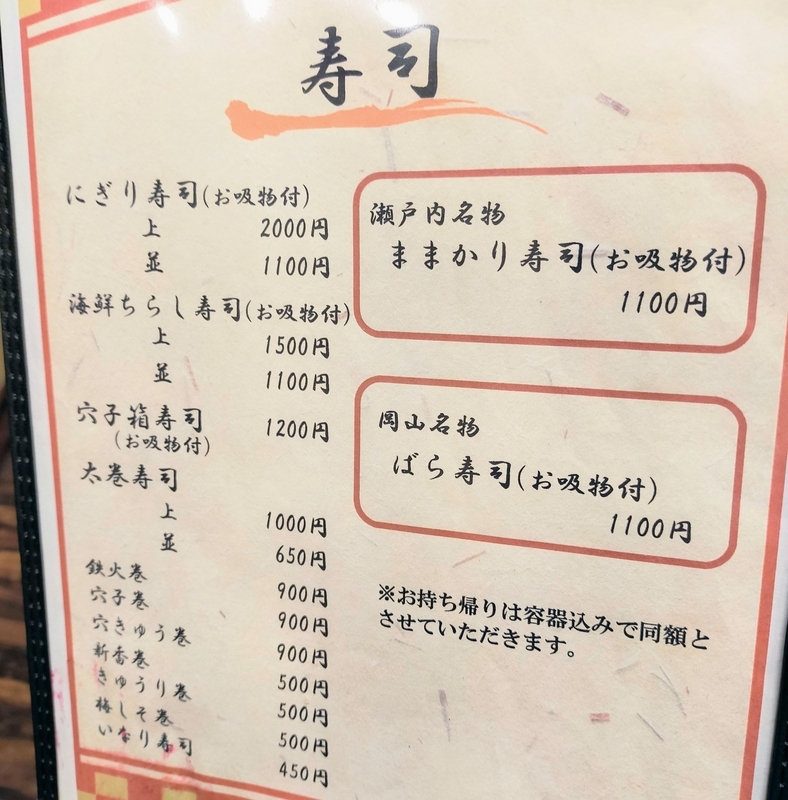 寿司
にぎり寿司(お吸物付)
上 2000円
並 1100円
海鮮ちらし寿司(お吸物付)
上 1500円
並 1100円
穴子箱寿司 1200円
(お吸物付)
太巻寿司
上 1000円
並 650円
鉄火巻 900円
穴子巻 900円
穴きゅう巻 900円
新香巻 500円
きゅうり巻 500円
梅しそ巻 500円
いなり寿司 450円
瀬戸内名物
ままかり寿司(お吸物付)
1100円
岡山名物
ばら寿司(お吸物付)
1100円
※お持ち帰りは容器込みで同額と
させていただきます。